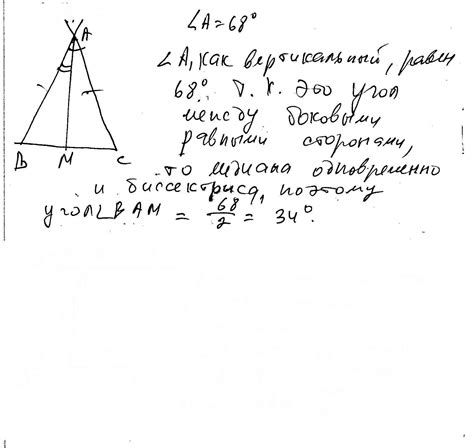 ∠A = 68°
∠A, как вертикальный, равен
68°. Т.к. это угол
между боковыми
равными сторонами,
то медиана одновременно
и биссектриса, поэтому
угол ∠BAM = 68/2 = 34°.
A
B M C